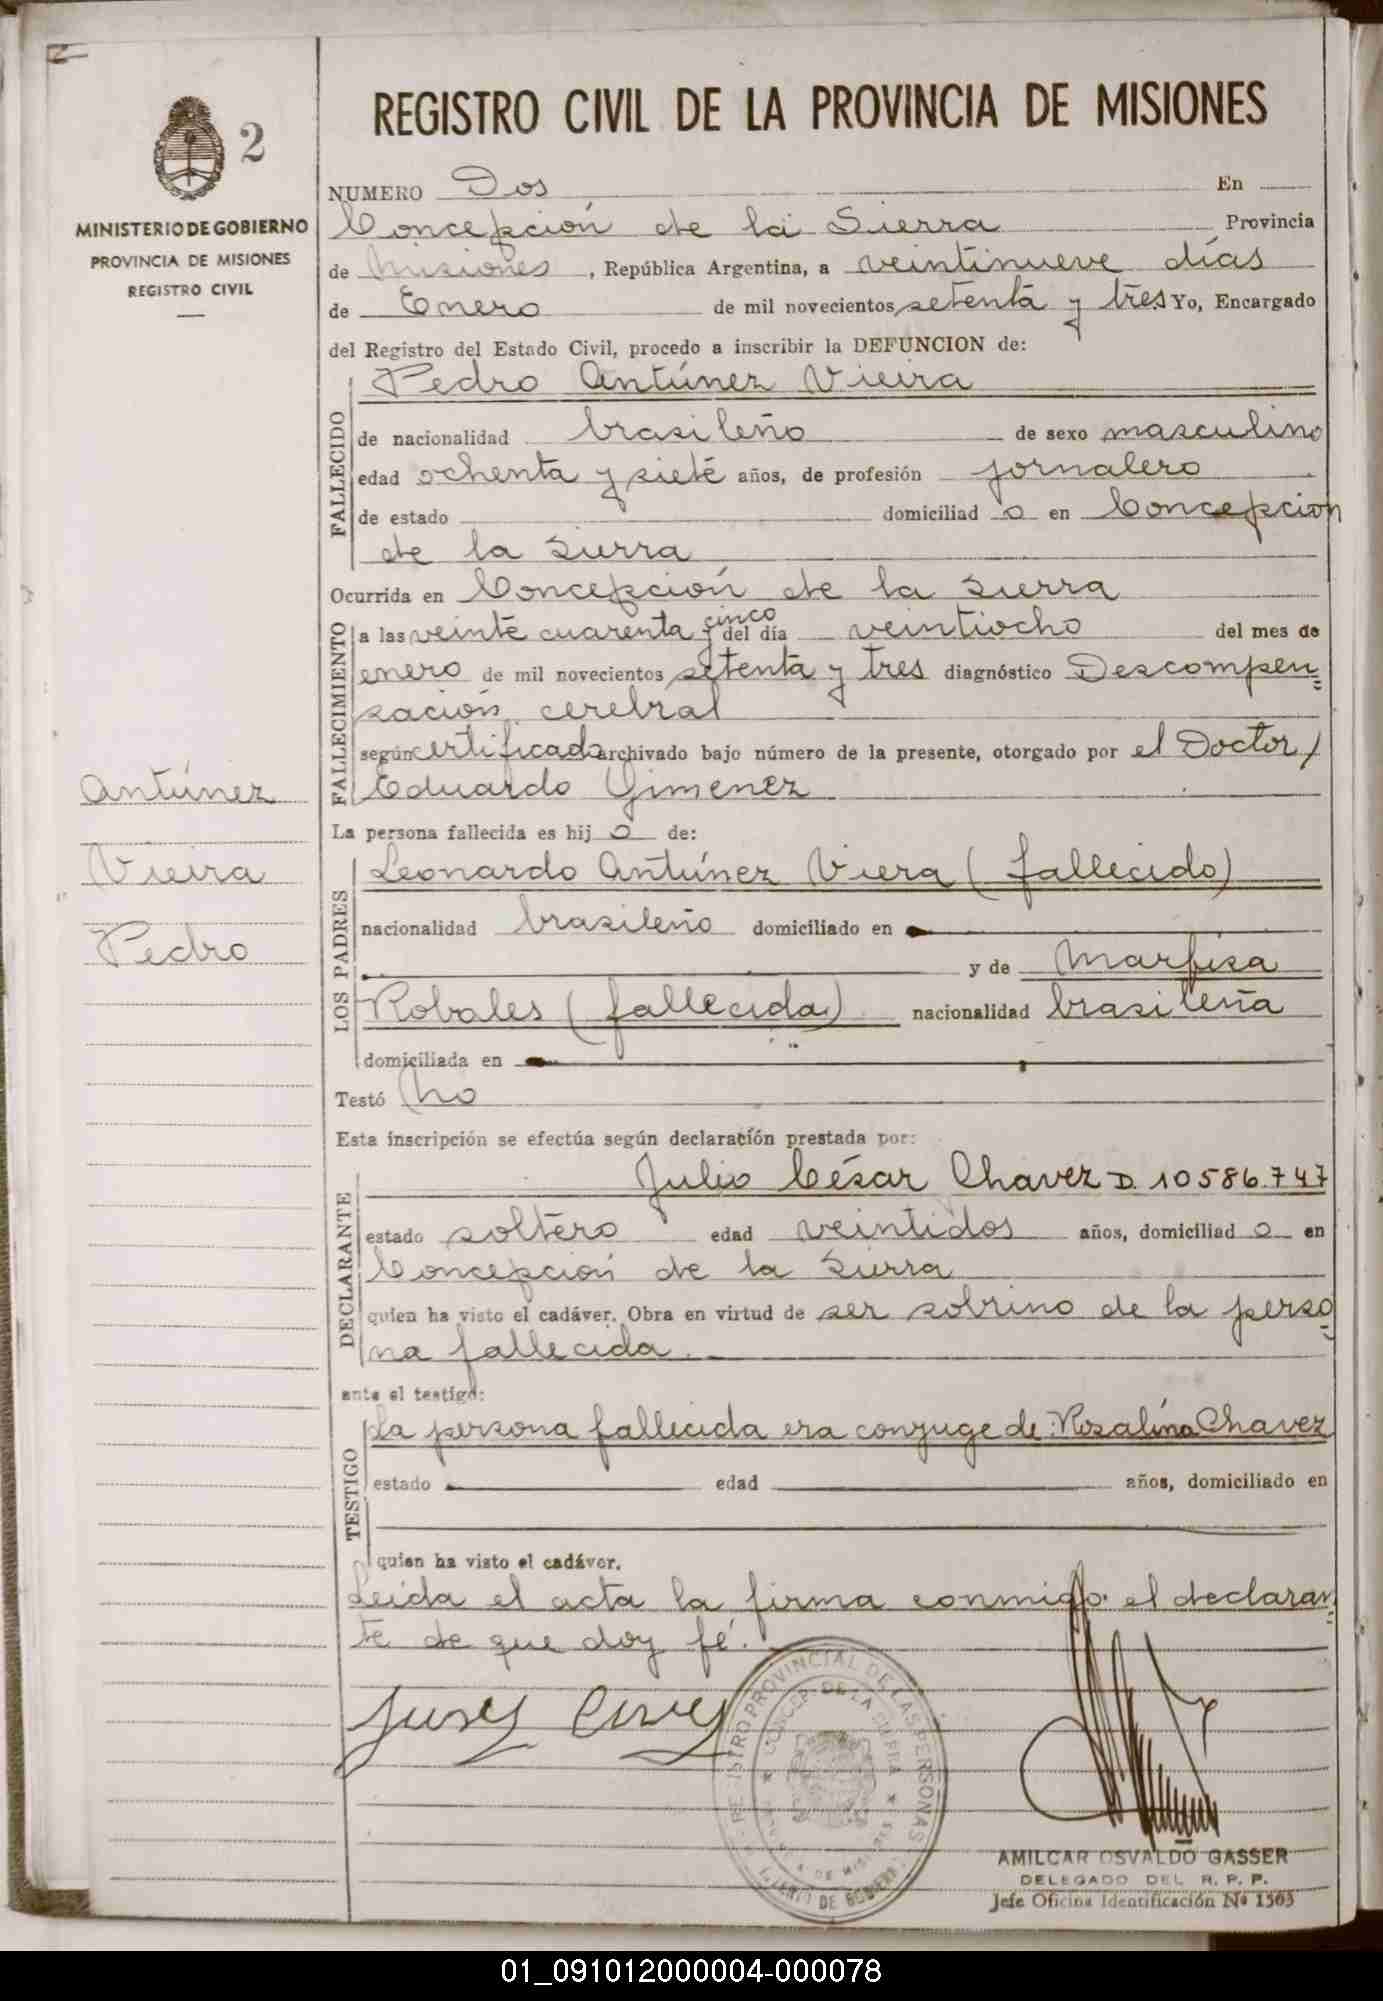 2
MINISTERIO DE GOBIERNO
PROVINCIA DE MISIONES
REGISTRO CIVIL
Antúnez
Vieira
Pedro
REGISTRO CIVIL DE LA PROVINCIA DE MISIONES
NUMERO Dos En
Concepción de la Sierra Provincia
de Misiones, República Argentina, a veintinueve días
de Enero de mil novecientos setenta y tres Yo, Encargado
del Registro del Estado Civil, procedo a inscribir la DEFUNCION de:
FALLECIDO
Pedro Antúnez Vieira
de nacionalidad brasileño de sexo masculino
edad ochenta y siete años, de profesión jornalero
de estado domiciliad o en Concepcion
de la Sierra
Ocurrida en Concepción de la Sierra
FALLECIMIENTO
a las veinte cuarenta y cinco del día veintiocho del mes de
enero de mil novecientos setenta y tres diagnóstico Descompen=
sación cerebral
según certificado archivado bajo número de la presente, otorgado por el Doctor/
Eduardo Gimenez
La persona fallecida es hij o de:
LOS PADRES
Leonardo Antúnez Viera (fallecido)
nacionalidad brasileño domiciliado en
y de Marfisa
Robales (fallecida) nacionalidad brasileña
domiciliada en
Testó No
Esta inscripción se efectúa según declaración prestada por:
DECLARANTE
Julio César Chavez D. 10586.747
estado soltero edad veintidos años, domiciliad o en
Concepción de la Sierra
quien ha visto el cadáver. Obra en virtud de ser sobrino de la perso=
na fallecida.
ante el testigo:
TESTIGO
La persona fallecida era conyuge de: Rosalina Chavez
estado edad años, domiciliado en
quien ha visto el cadáver.
Leida el acta la firma conmigo el declaran=
te de que doy fé.
REGISTRO PROVINCIAL DE LAS PERSONAS
CONCEP. DE LA SIERRA
DE GOBIERNO
AMILCAR OSVALDO GASSER
DELEGADO DEL R. P. P.
Jefe Oficina Identificación Nº 1563
01_091012000004-000078